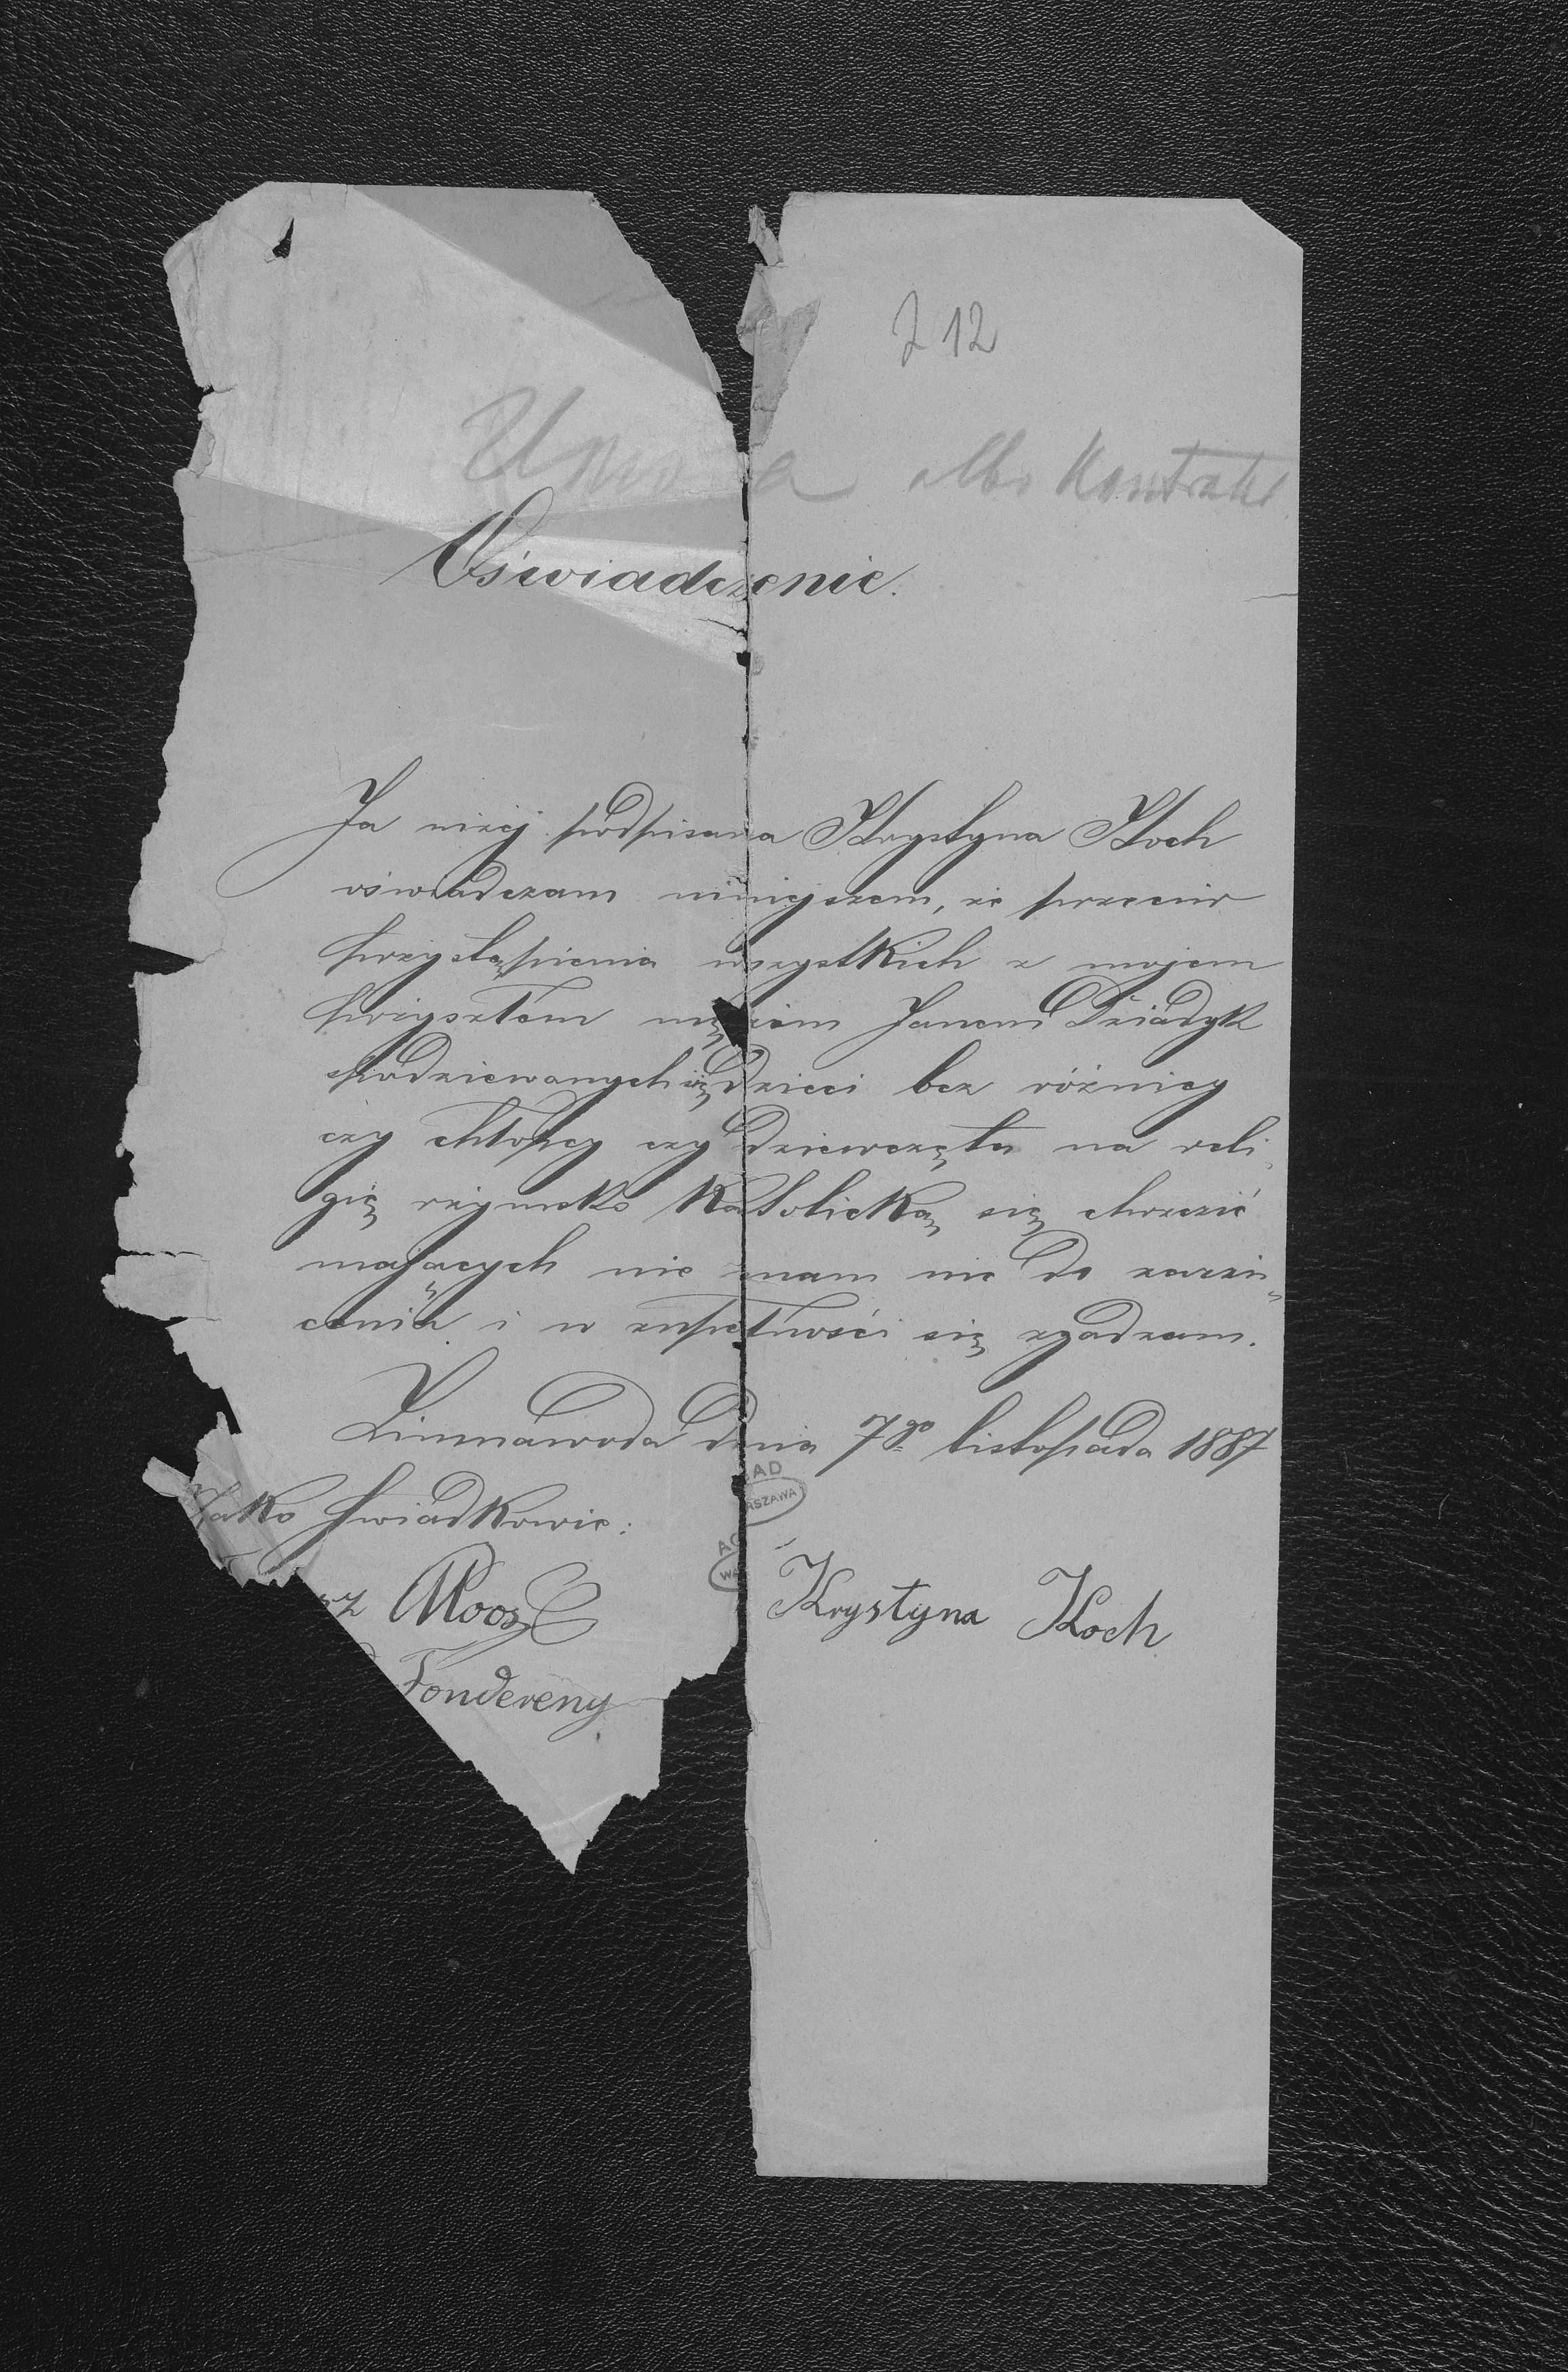 212
Umowa albo Kontrakt
Oświadczenie.
Ja niżej podpisana Krystyna Koch
oświadczam niniejszem, że przeciw
przystąpienia wszystkich z mojem
przyszłem mężem Janem Dziadyk
spodziewanych się dzieci bez różnicy
czy chłopcy czy dziewczęta na reli-
gię rzymsko Katolicką się chrzcić
mających nie mam nic do zarzu-
cenia i w zupełności się zgadzam.
Zimnawoda dnia 7go listopada 1887
Jako świadkowie:
Krystyna Koch
rz Moos
Fondereny